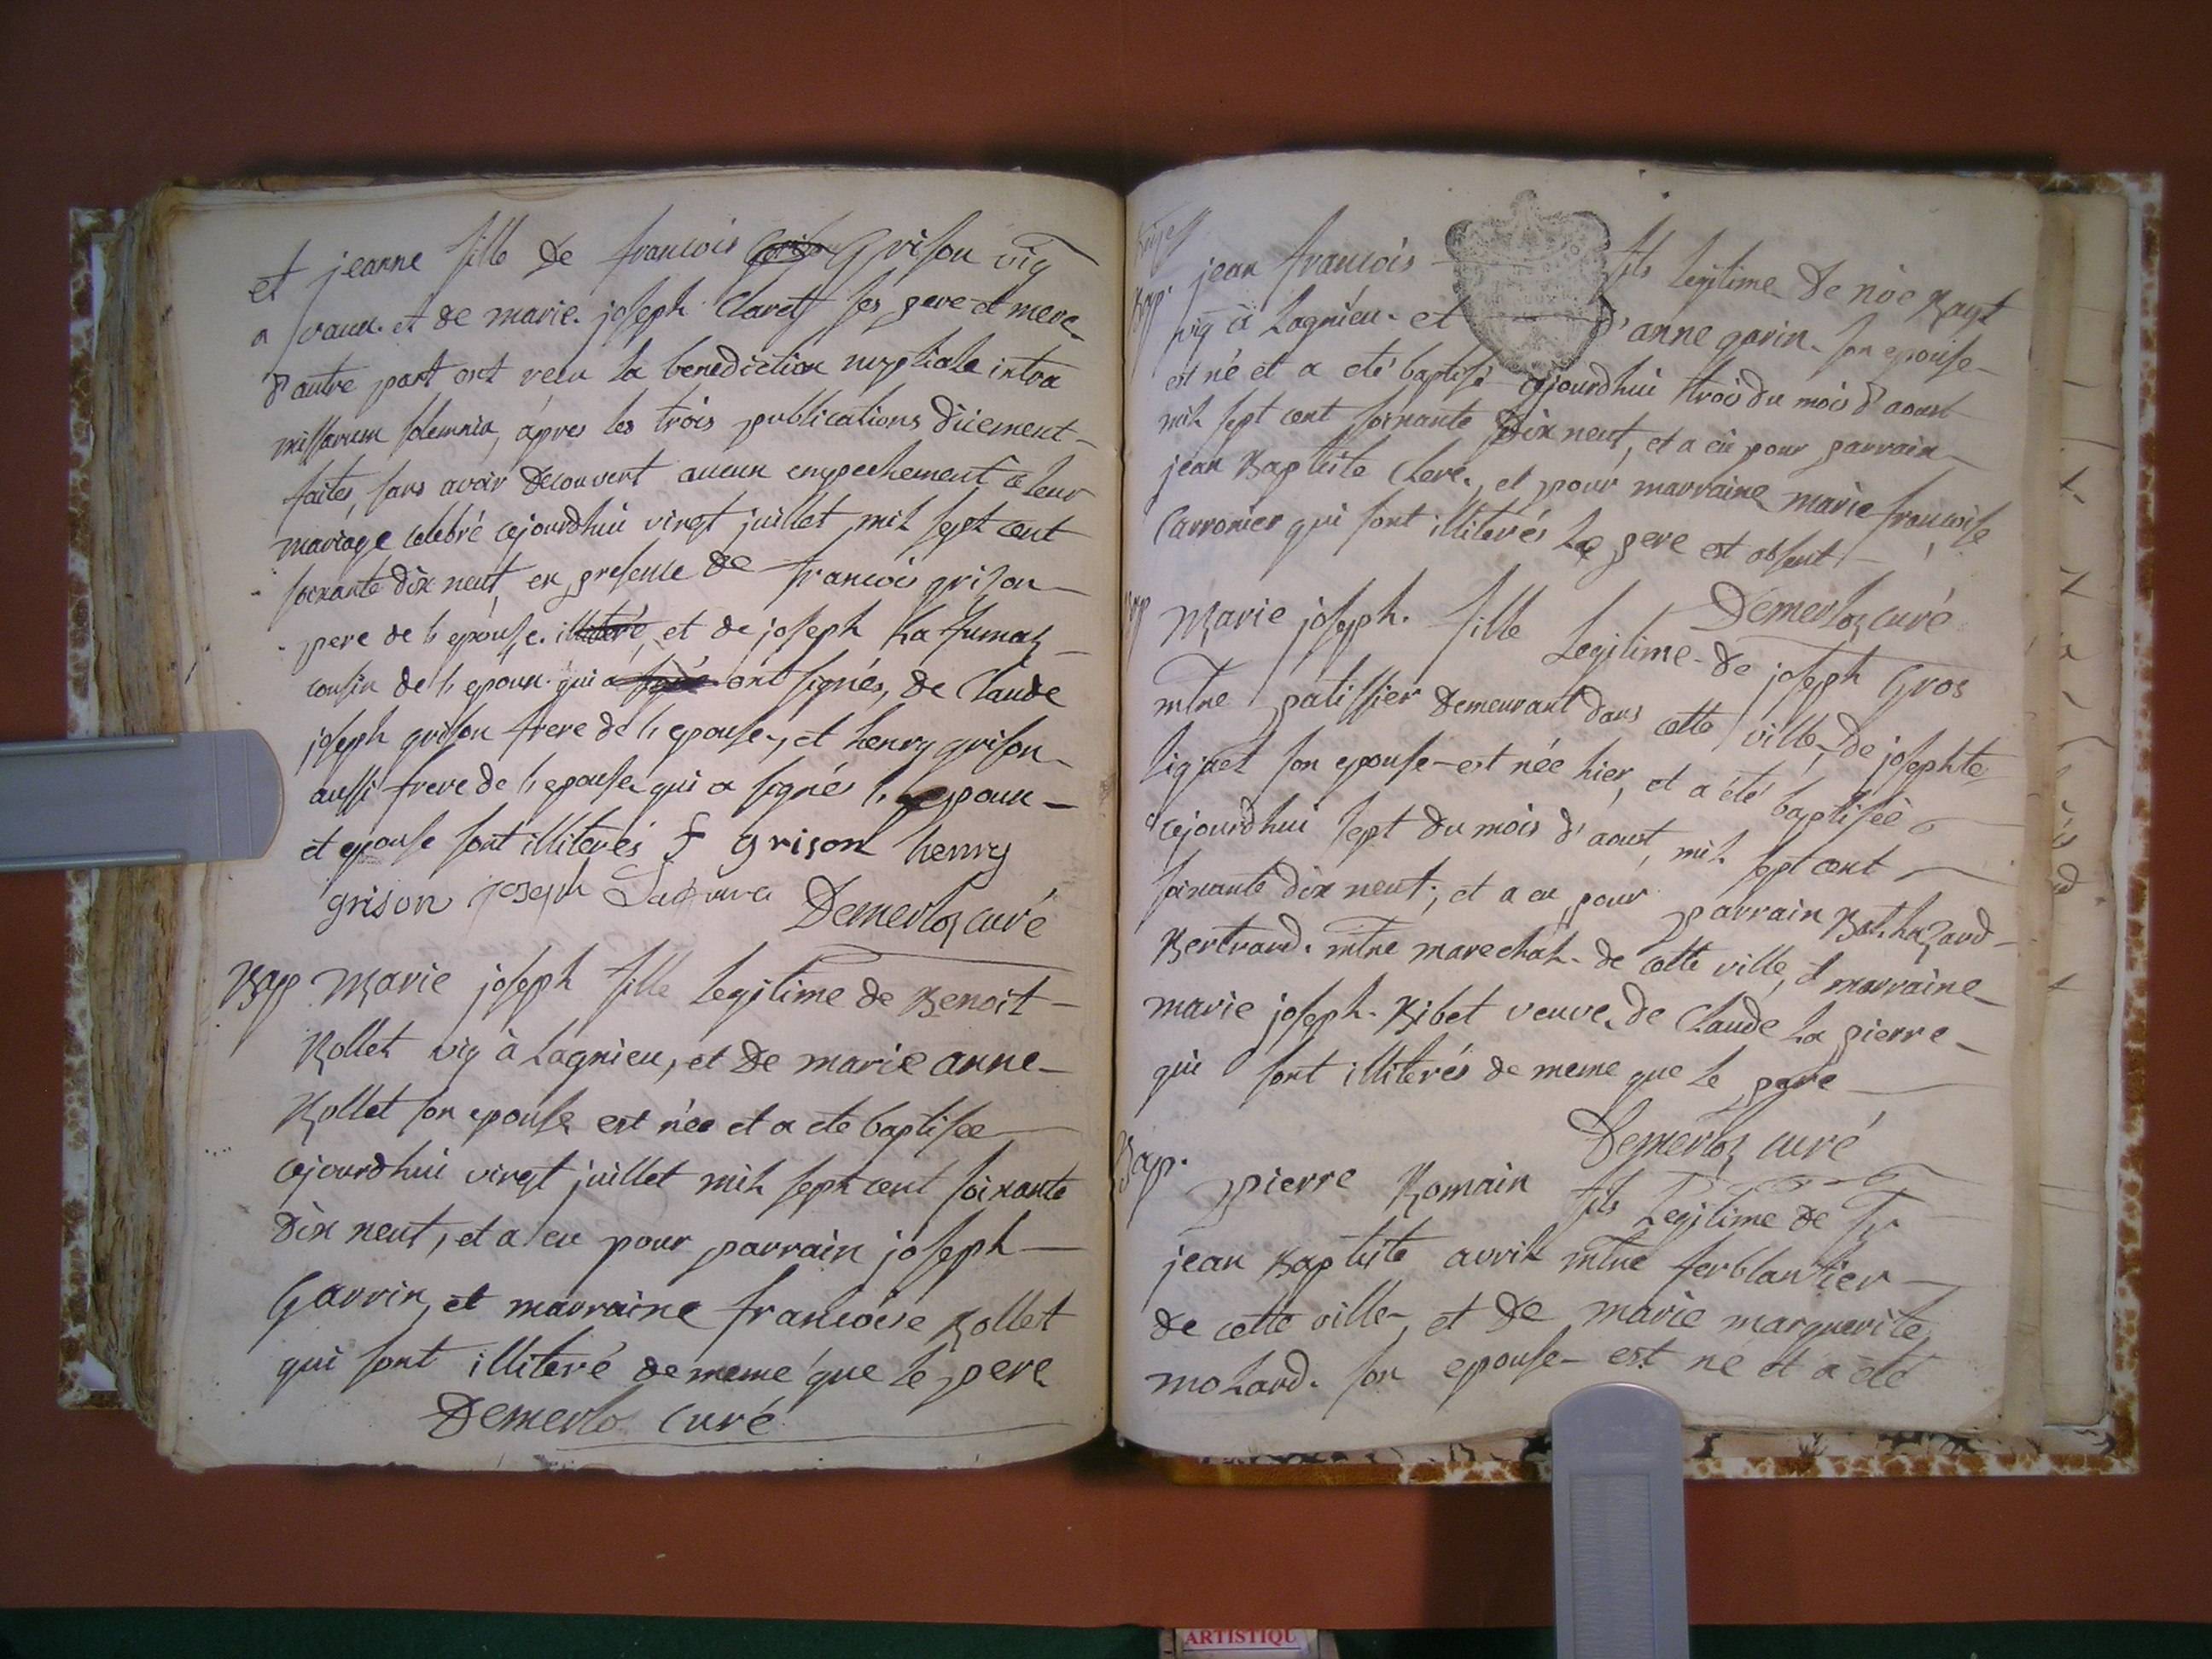 et jeanne fille de francois Grison Grison vig
a vaux. et de marie. joseph Claret ses pere et mere
d'autre part ont recu la benediction nuptiale intra
missarum solemnia, àpres les trois publications düement
faites, sans avoir decouvert aucun empechement à leur
mariage celebré cejourdhui vingt juillet mil sept cent
soixante dix neuf, en presence de francois grison
pere de l'epouse. illiteré, et de joseph
cousin de l'epoux. qui a signé ont signés, de Claude
joseph grison frere de l'epouse, et henry grison
aussi frere de l'epouse qui a signés l'epoux
et epouse sont illiterés f grison henry
grison joseph Demerloz curé
Bap Marie joseph fille legitime de Benoit
Rollet vig à Lagnieu, et de marie anne
Rollet son epouse est née et a eté baptisée
cejourdhui vingt juillet mil sept cent soixante
dix neuf, et a eu pour parrain joseph
Garrin, et marraine francoise Rollet
qui sont illiteré de meme que le pere
Demerlo curé
Bap. jean francois fils legitime de nöe
vig à Lagnieu. et d'anne garin. son epouse
est né et a eté baptisé cejourdhui trois du mois d'aoust
mil sept cent soixante dix neuf, et a eü pour parrain
jean Baptiste Clere, et pour marraine marie francoise
Carronier qui sont illiterés Le pere est absent
Demerloz curé
Bap Marie joseph. fille Legitime de joseph Gros
mtre patissier demeurant dans cette ville, de josephte
liquet son epouse est née hier, et a été baptisée
cejourdhui sept du mois d'aoust, mil sept cent
soixante dix neuf; et a eu pour parrain Balthazard
Bertrand. mtre marechal. de cette ville, et marraine
marie joseph. Bibet veuve de Claude La pierre
qui sont illiterés de meme que le pere
Demerloz curé
Bap. pierre Romain fils Legitime de
jean Baptiste avril mtre ferblantier
de cette ville, et de marie marguerite
molard. son epouse est né et a eté
ARTISTIQU